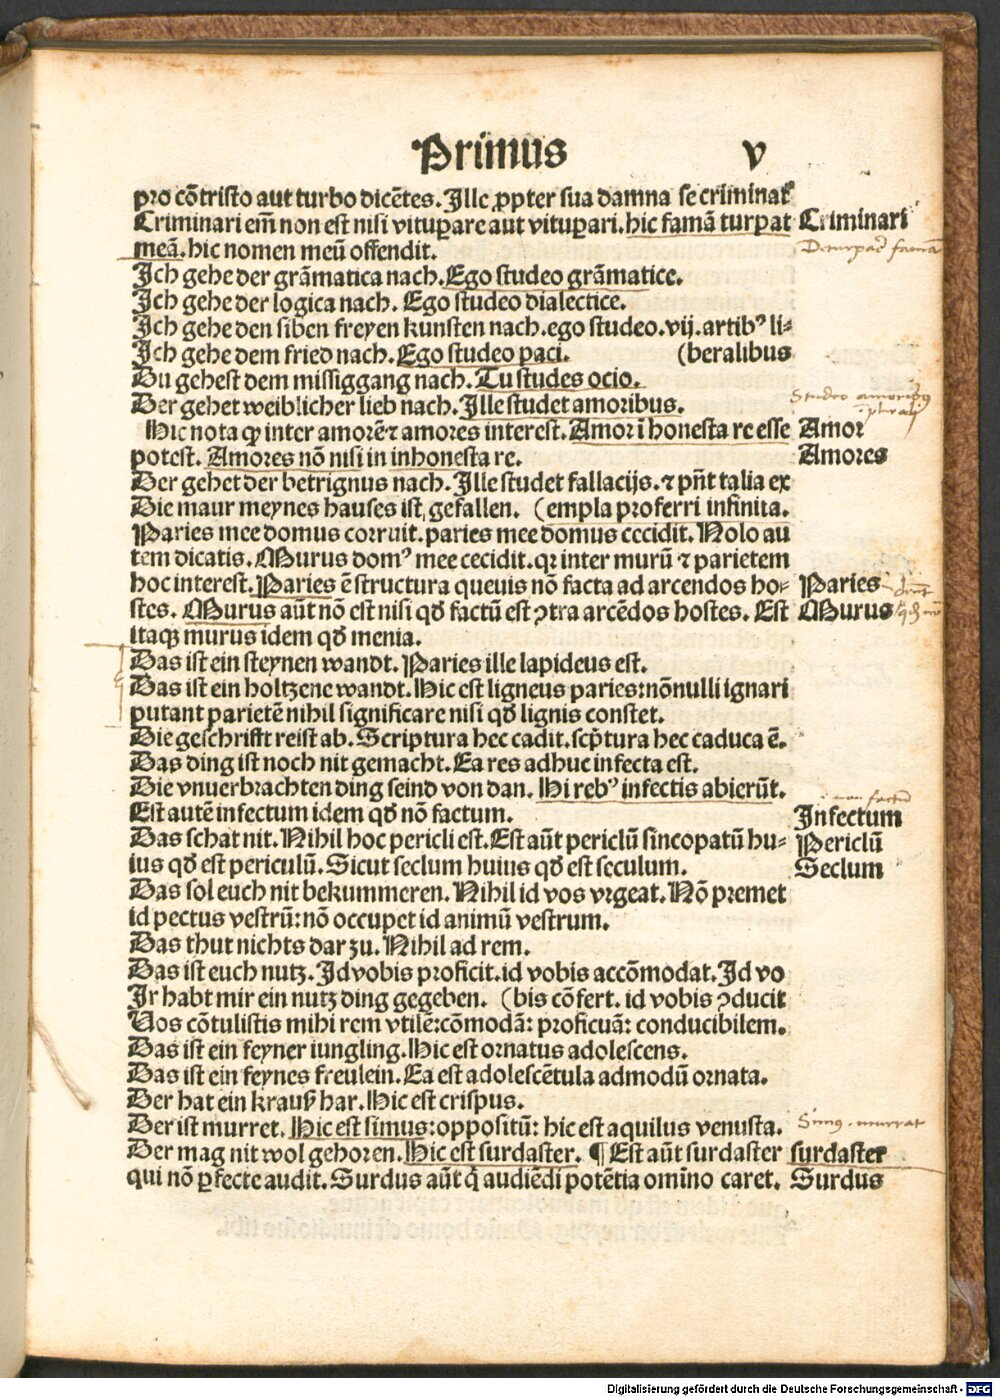 Primus v
pro cõtristo aut turbo dicẽtes. Ille ꝓpter sua damna se criminat᷑
Criminari eiñ non est nisi vituꝑare aut vituꝑari. hic famã turpat Criminari
Deturpare famã
meã. hic nomen meũ offendit.
Ich gehe der grãmatica nach. Ego studeo grãmatice.
Ich gehe der logica nach. Ego studeo dialectice.
Ich gehe den siben freyen kunsten nach. ego studeo. vij. artibꝰ li-
Ich gehe dem fried nach. Ego studeo paci. (beralibus
Du gehest dem missiggang nach. Tu studes ocio.
Studeo amoribus
Der gehet weiblicher lieb nach. Ille studet amoribus.
Hic nota ꝙ inter amorẽ ⁊ amores interest. Amor ĩ honesta re esse Amor
potest. Amores nõ nisi in inhonesta re. Amores
Der gehet der betrignus nach. Ille studet fallacijs. ⁊ pñt talia ex
Die maur meynes hauses ist gefallen. (empla proferri infinita.
Paries mee domus corruit. paries mee domus cecidit. Nolo au
tem dicatis. Murus domꝰ mee cecidit. qꝛ inter murũ ⁊ parietem
hoc interest. Paries ẽ structura queuis nõ facta ad arcendos ho- Paries
stes. Murus aũt nõ est nisi qđ factũ est ꝯtra arcẽdos hostes. Est Murus
itaqꝫ murus idem qđ menia.
Das ist ein steynen wandt. Paries ille lapideus est.
Das ist ein holtzene wandt. Hic est ligneus paries: nõnulli ignari
putant parietẽ nihil significare nisi qđ lignis constet.
Die geschrifft reist ab. Scriptura hec cadit. scp̃tura hec caduca ẽ.
Das ding ist noch nit gemacht. Ea res adhuc infecta est.
Die vnuerbrachten ding seind von dan. Hi rebꝰ infectis abierũt.
non factũ
Est autẽ infectum idem qđ nõ factum. Infectum
Das schat nit. Nihil hoc pericli est. Est aũt periclũ sincopatũ hu- Periclũ
ius qđ est periculũ. Sicut seclum huius qđ est seculum. Seclum
Das sol euch nit bekummeren. Nihil id vos vrgeat. Nõ premet
id pectus vestrũ: nõ occupet id animũ vestrum.
Das thut nichts dar zu. Nihil ad rem.
Das ist euch nutz. Id vobis proficit. id vobis accõmodat. Id vo
Ir habt mir ein nutz ding gegeben. (bis cõfert. id vobis ꝯducit
Uos cõtulistis mihi rem vtilẽ: cõmodã: proficuã: conducibilem.
Das ist ein feyner iungling. Hic est ornatus adolescens.
Das ist ein feynes freulein. Ea est adolescẽtula admodũ ornata.
Der hat ein krauß har. Hic est crispus.
Simus. murrat
Der ist murret. Hic est simus: oppositũ: hic est aquilus venusta.
Der mag nit wol gehoren. Hic est surdaster. ¶ Est aũt surdaster surdaster
qui nõ ꝑfecte audit. Surdus aũt q̃ audiẽdi potẽtia omĩno caret. Surdus
Digitalisierung gefördert durch die Deutsche Forschungsgemeinschaft - DFG